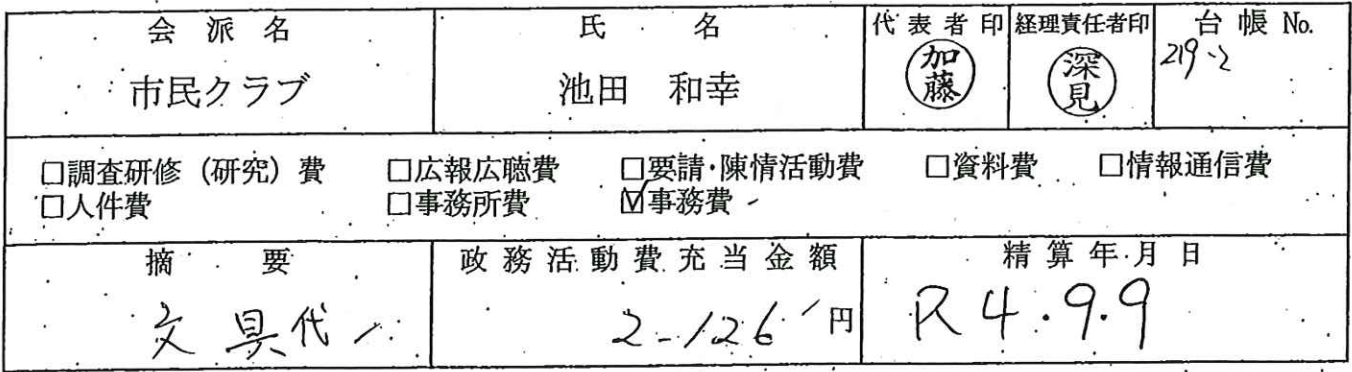 会派名 氏名 代表者印 経理責任者印 台帳 No.
市民クラブ 池田 和幸 加藤 深見 219-2
□調査研修（研究）費 □広報広聴費 □要請・陳情活動費 □資料費 □情報通信費
□人件費 □事務所費 ☑事務費
摘要 政務活動費充当金額 精算年月日
文具代 2-126円 R4.9.9